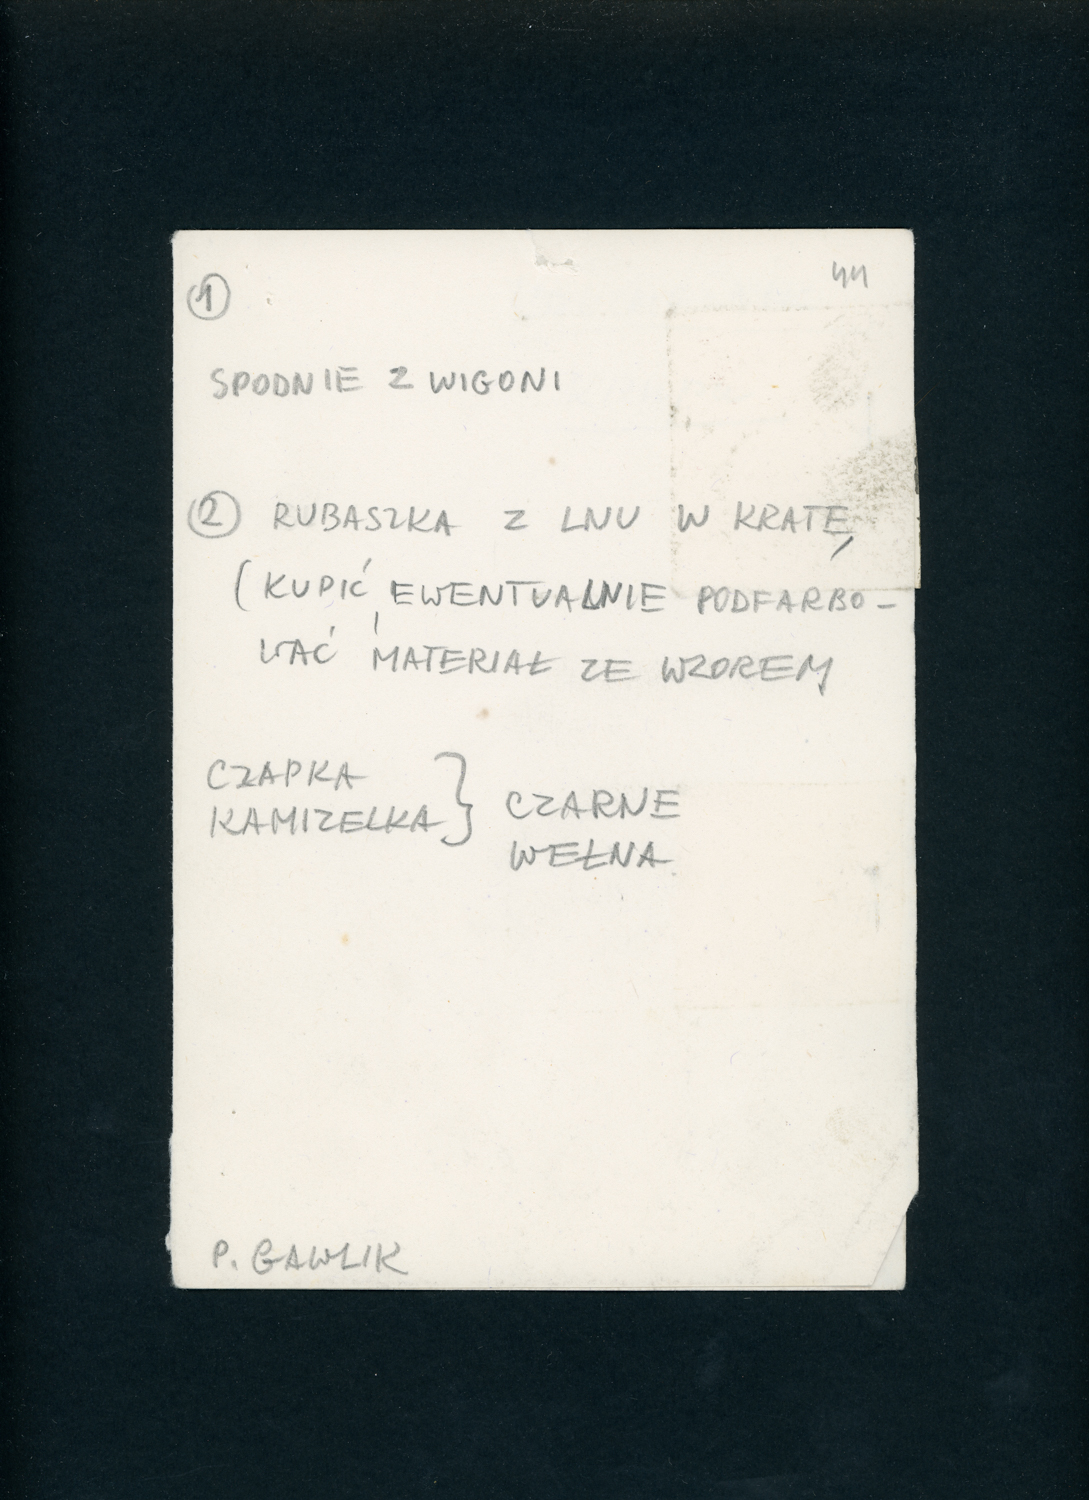 44
1
SPODNIE Z WIGONI
2 RUBASZKA Z LNU W KRATĘ
(KUPIĆ, EWENTUALNIE PODFARBO-
WAĆ MATERIAŁ ZE WZOREM
CZAPKA
KAMIZELKA } CZARNE
WEŁNA
P. GAWLIK